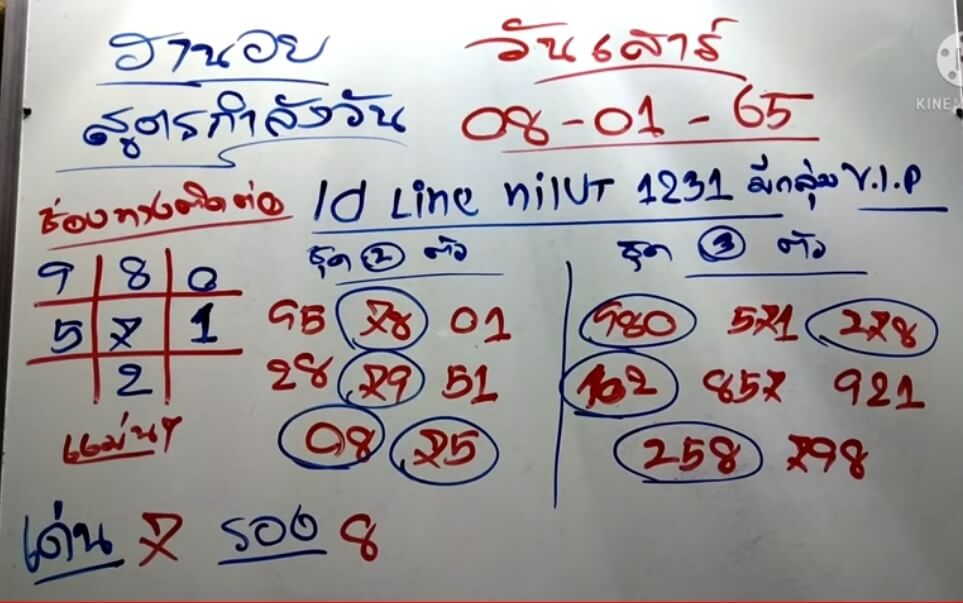 ฮานอย วันเสาร์
สูตรกำลังวัน 08-01-65
ช่องทางติดต่อ Id Line nilUT 1231 มีกลุ่ม V.I.P
ชุด 2 ตัว ชุด 3 ตัว
9 8 0
5 7 1 95 78 01 980 571 278
2 28 79 51 102 857 921
แม่นๆ 08 75 258 798
เด่น 7 รอง 8
KINEM